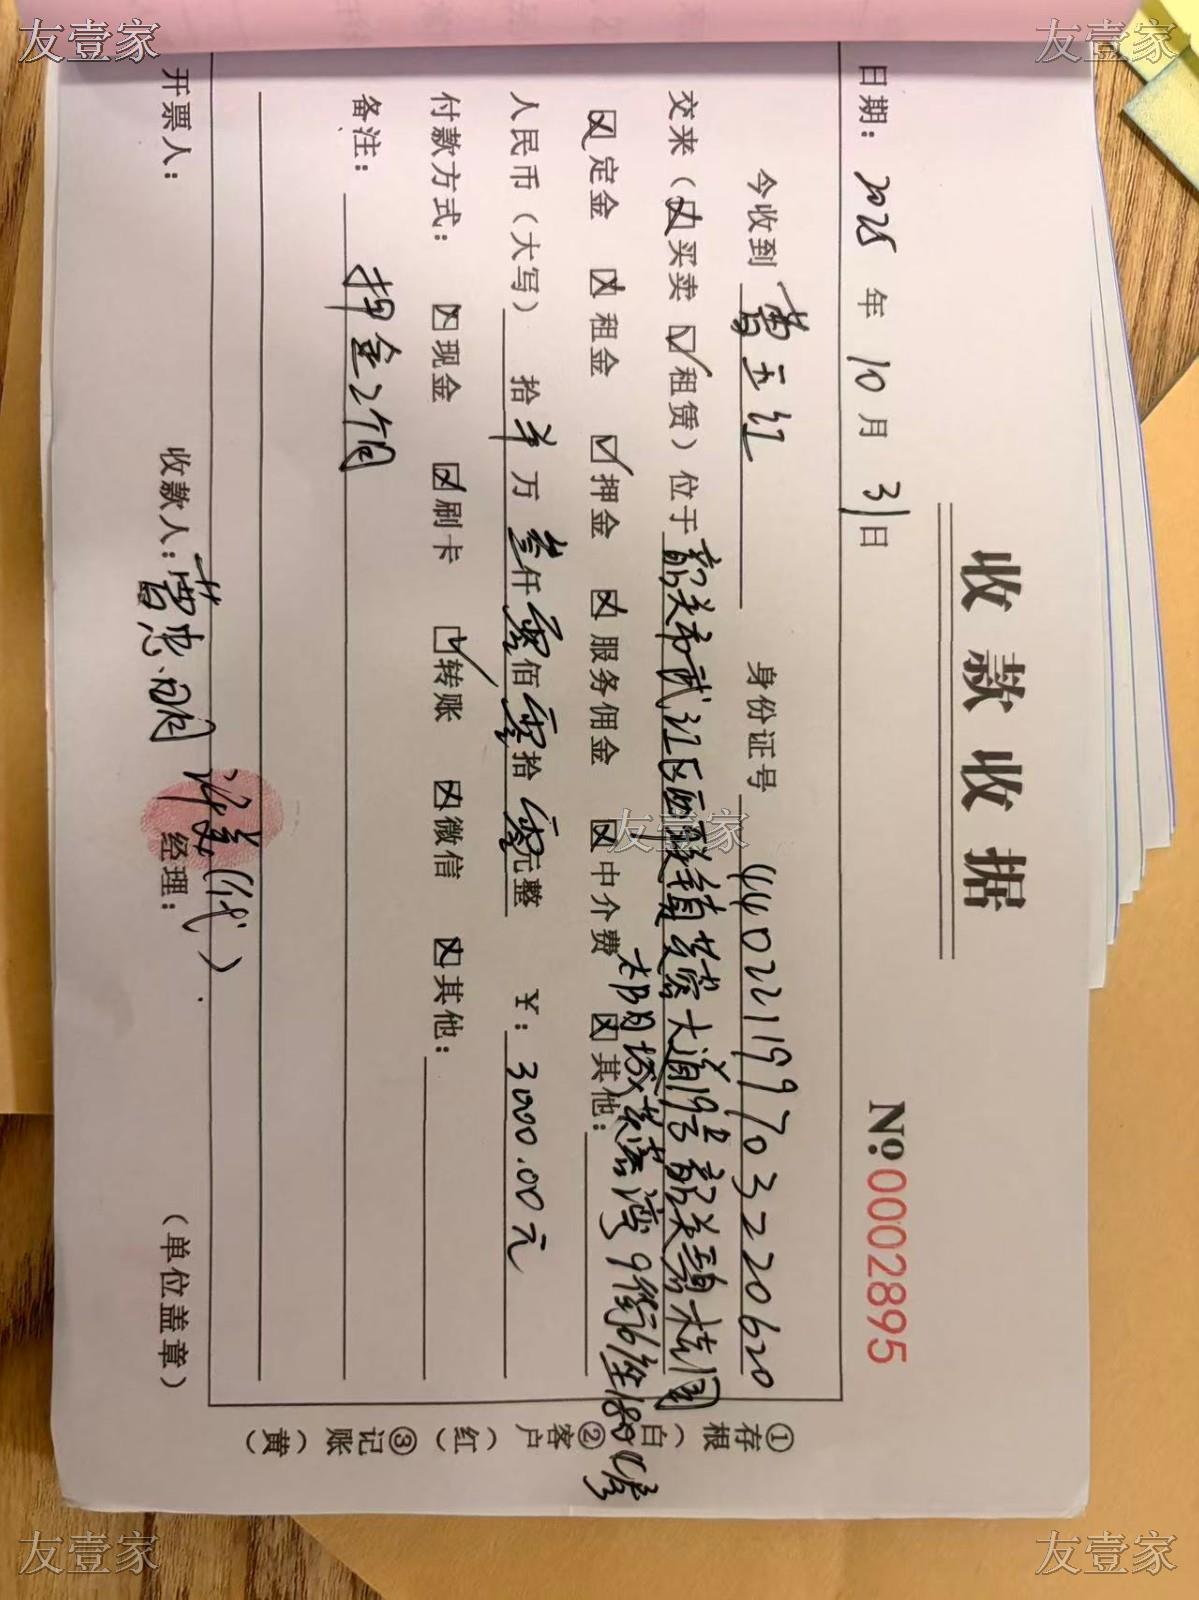 收款收据
No:0002895
日期：2025年10月31日
今收到 曹玉红 身份证号 440221199703220620
交来（☒买卖 ☑租赁）位于 韶关市武江区西联镇芙蓉大道19号韶关碧桂园
太阳城芙蓉湾9街6座1804号
☒定金 ☒租金 ☑押金 ☒服务佣金 ☒中介费 ☒其他：
人民币（大写） 拾 羊 万 叁 仟 零 佰 零 拾 零 元整 ¥：3000.00元
付款方式： ☒现金 ☒刷卡 ☑转账 ☒微信 ☒其他：
备注： 押金2个月
开票人： 收款人： 经理： （单位盖章）
（代）
①存根（白）②客户（红）③记账（黄）
友壹家
友壹家
友壹家
友壹家
友壹家